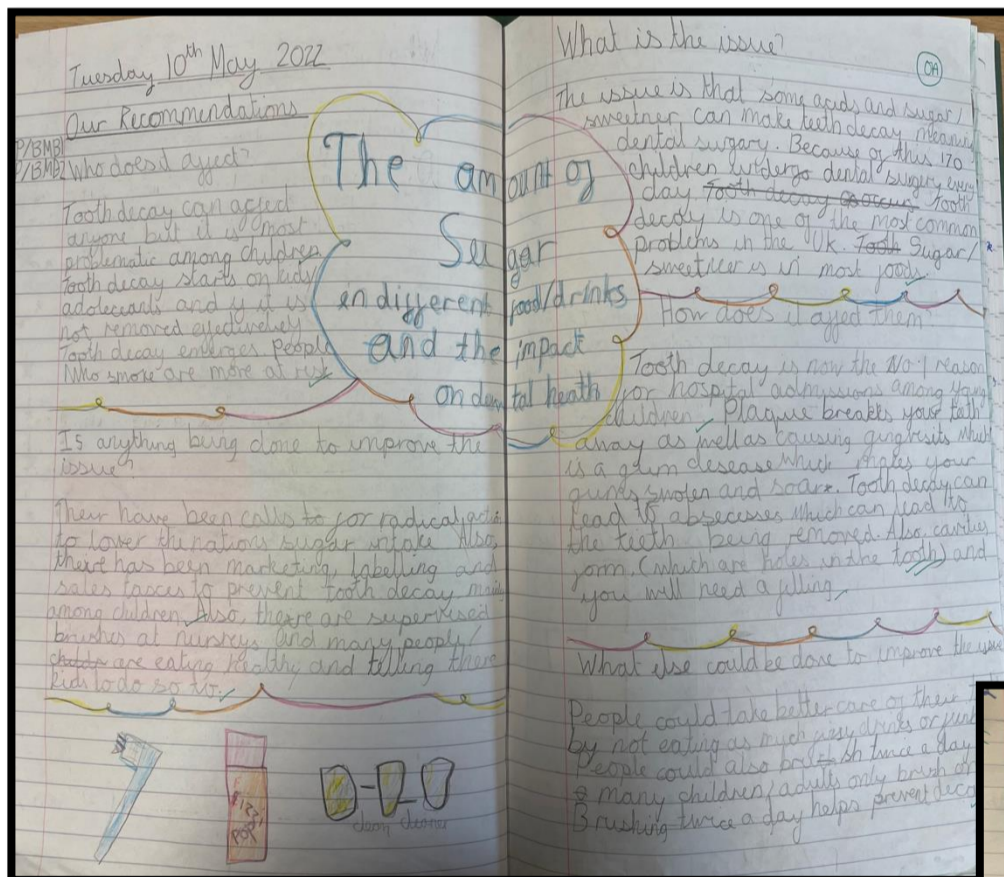 Tuesday 10th May 2022
Our Recommendations
P/BMB1
P/BMB2
Who does it affect?
Tooth decay can affect
anyone but it is most
problematic among children
Tooth decay starts on kids/
adolecants and if it is
not removed effectively
Tooth decay emerges. People
Who smoke are more at risk
The amount of
Sugar
in different food/drinks
and the impact
on dental heath
Is anything being done to improve the
issue?
Their have been calls to for radical action
to lower the nations sugar intake Also,
there has been marketing, labelling and
sales taxces to prevent tooth decay
among children. Also, there are supervised
brushes at nurserys and many people/
are eating Healthy and telling there
kids to do so to.
FIZZY
POP
clean cleaner
What is the issue?
OA
The issue is that some acids and sugar/
sweetner can make teeth decay meaning
dental surgary. Because of this 170
children undergo dental surgery every
day Tooth decay is occurs Tooth
decay is one of the most common
Problems in the UK. Tooth Sugar/
sweetner is in most foods.
How does it affect them
Tooth decay is now the No-1 reason
for hospital admissions among young
children. Plaque breakes your teeth
away as well as causing gingvisits which
is a gum desease which makes your
gums swolen and soar. Tooth decay can
lead to absecesses which can lead to
the teeth being removed. Also, cavities
form. (which are holes in the tooth) and
you will need a filling.
What else could be done to improve the issue
People could take better care of their
by not eating as much fizzy drinks or
People could also brush twice a day
many children/adults only brush
Brushing twice a day helps prevent